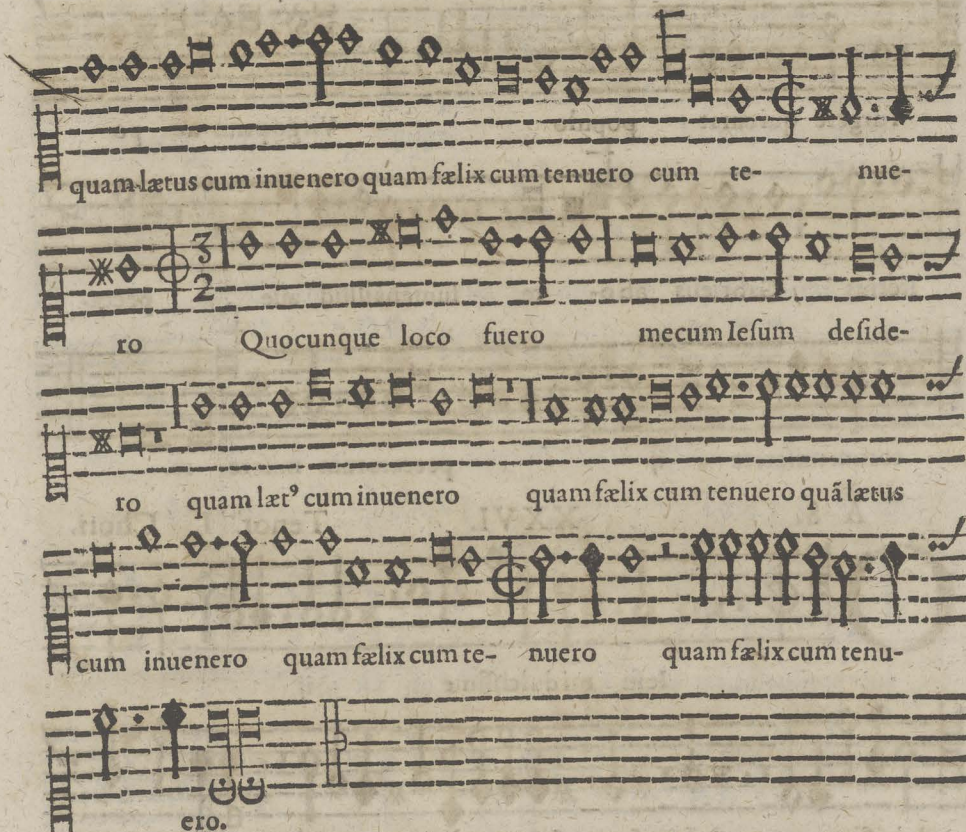 quam lætus cum inuenero quam fælix cum tenuero cum te- nue-
3
2
ro Quocunque loco fuero mecum Iesum deside-
ro quam læt⁹ cum inuenero quam fælix cum tenuero quã lætus
cum inuenero quam fælix cum te- nuero quam fælix cum tenu-
ero.